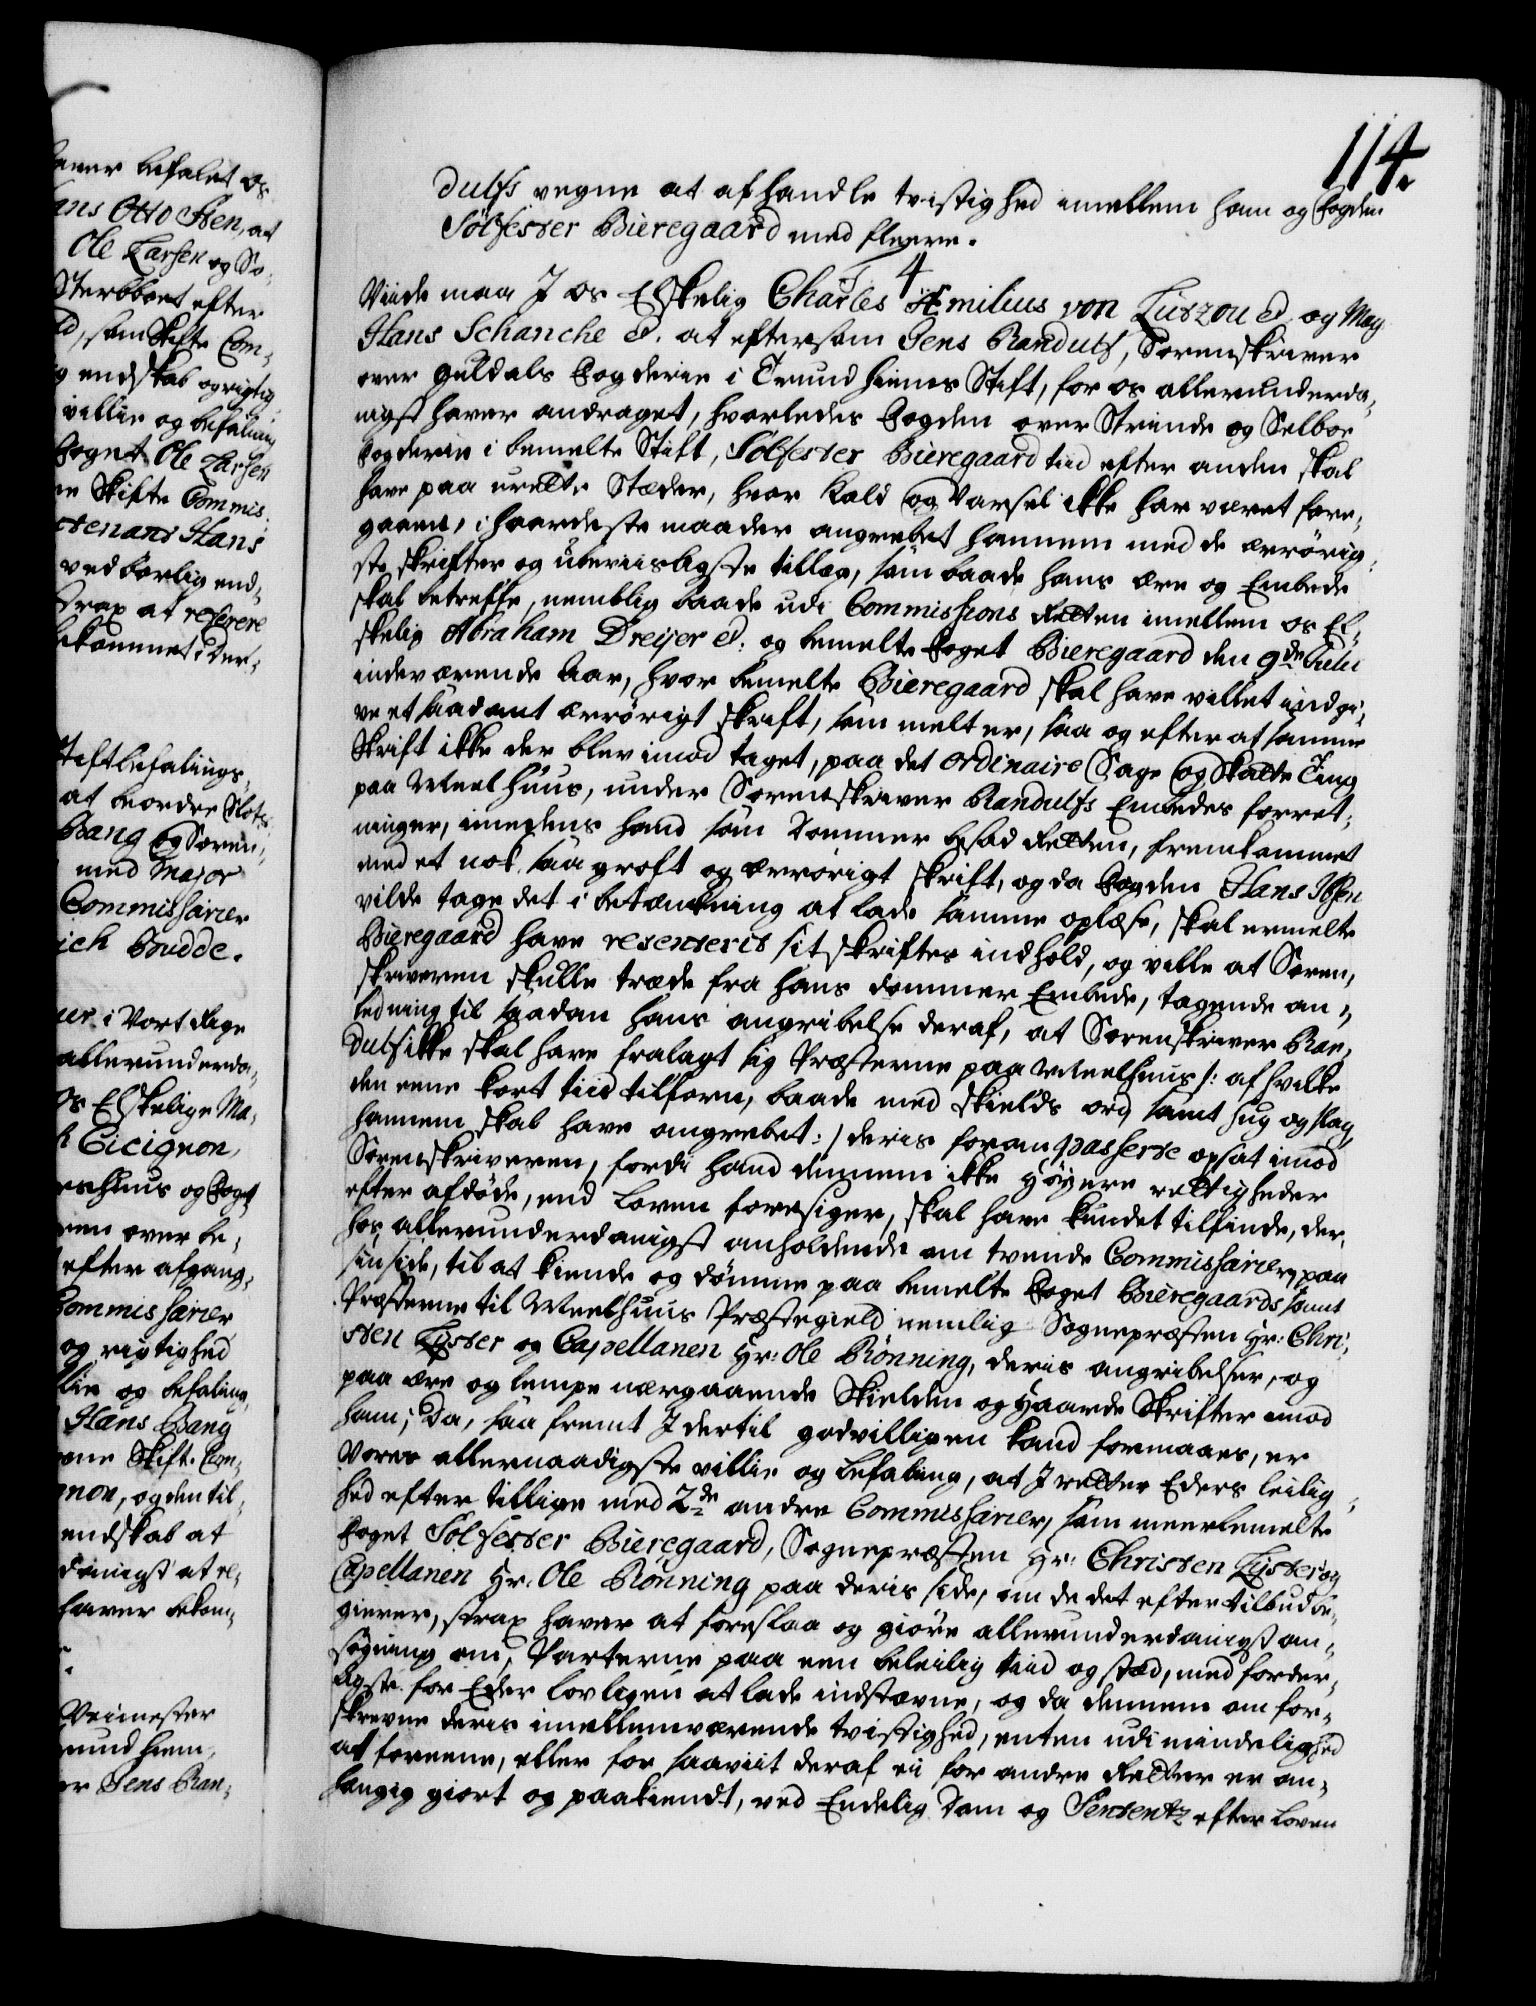 114.
dulfs vegne at afhandle tvistighed imellem ham og Fogden
Sölfester Bieregaard med fleere.
4
Viide maa I os Elskelig Charles Æmilius von Luszou &. og Mag
Hans Schanche &. at eftersom Jens Randulf, Sorenskriver
over Guldals Fogderie i Trundhiems Stift, for os allerunderda-
nigst haver andraget, hvorledes Fogden over Strinde og Selboe
Fogderie i bemelte Stift, Sölfester Bieregaard tiid efter anden skal
have paa urette Stæder, hvor Kald og Varsel ikke har været fore-
gaaen, i haardeste maader angrebet hannem med de ærrörig-
ste skrifter og ubeviisligste tillæg, som baade hans ære og Embede
skal betreffe, nemblig baade udi Commissions Retten imellem os El-
skelig Abraham Dreijer &. og bemelte Foget Bieregaard den 9de Julii
indeværende Aar, hvor bemelte Bieregaard skal have villet indgi-
ve et saadant ærrörigt skrift, som melt er, saa og efter at samme
Skrift ikke der blev imod taget, paa det ordinaire Sage og Skatte Ting
paa Meelhuus, under Sorenskriver Randulfs Embedes forret-
ninger, imedens hand som Dommer besad Retten, fremkommet
med et nok saa groft og ærrörigt skrift, og da Fogden Hans Ibsen
vilde tage det i betænkning at lade samme oplæse, skal ermelte
Bieregaard have resenteris sit skriftes indhold, og ville at Soren-
skriveren skulle træde fra hans dommer Embede, tagende an-
ledning til saadan hans angribelse deraf, at Sorenskriver Ran-
dulf ikke skal have fralagt sig Præsterne paa Meelhuus /: af hvilke
den eene kort tiid tilforn, baade med skields ord, samt hug og slag,
hannem skal have angrebet :/ deris foran passerte opsat imod
Sorenskriveren, fordi hand dennem ikke höyere rettigheder
efter afdöde, end Loven foresiger, skal have kundet tilfinde, der-
hos allerunderdanigst anholdende om tvende Commissarier, paa
sin side, til at kiende og dömme paa bemelte Foget Bieregaards samt
Præsterne til Meelhuus Præstegield nemlig Sognepræsten Hr: Chri-
sten Lyster og Capellanen Hr: Ole Rönning, deris angribelser, og
paa ære og lempe nærgaaende Skielden og haarde Skrifter imod
ham; Da, saa fremt I dertil godvilligen kand formaaes, er
Vores allernaadigste villie og befaling, at I retter Eders leilig-
hed efter tillige med 2de andre Commissarier, som meerbemelte
Foget Sölfester Bieregaard, Sognepræsten Hr: Christen Lyster og
Capellanen Hr: Ole Rönning paa deris side, om de det efter tilbud be-
gierer, strax haver at foreslaa og giöre allerunderdanigst an-
sögning om, Parterne paa een beleilig tiid og stæd, med forder-
ligste for Eder lovligen at lade indstævne, og da dennem om for-
skrevne deris imellemværende tvistighed, enten udi mindelighed
at foreene, eller for saaviit deraf ei for andre Retter er an-
hængig giort og paakiendt, ved Endelig Dom og Sentz efter Loven